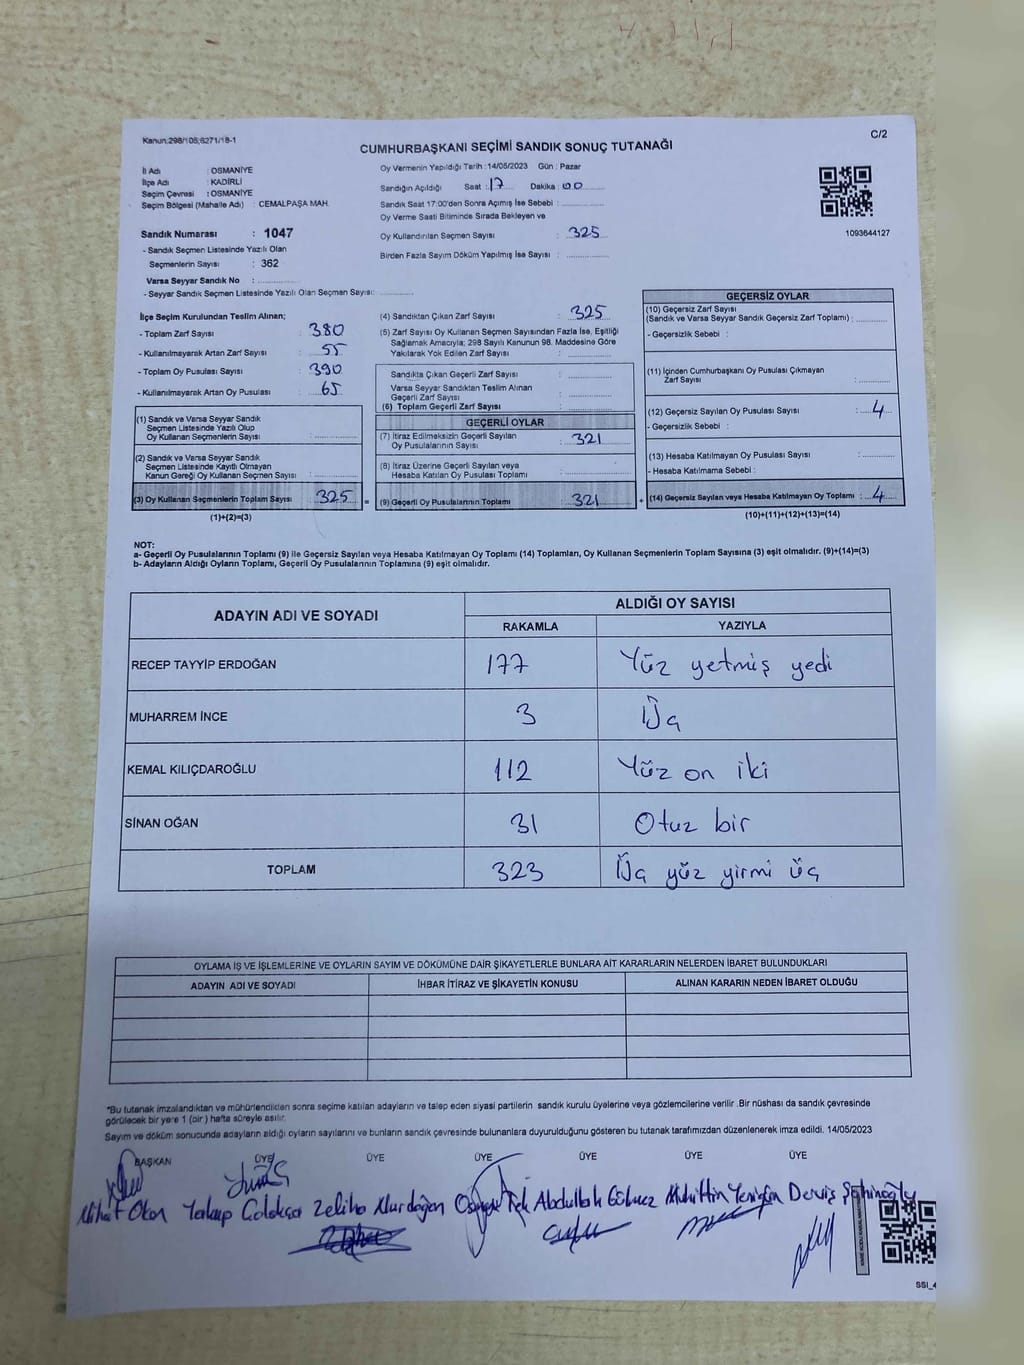 Kanun:298/105;6271/18-1
C/2
CUMHURBAŞKANI SEÇİMİ SANDIK SONUÇ TUTANAĞI
İl Adı : OSMANİYE
İlçe Adı : KADİRLİ
Seçim Çevresi : OSMANİYE
Seçim Bölgesi (Mahalle Adı) : CEMALPAŞA MAH.
Sandık Numarası : 1047
- Sandık Seçmen Listesinde Yazılı Olan
Seçmenlerin Sayısı : 362
Varsa Seyyar Sandık No :
- Seyyar Sandık Seçmen Listesinde Yazılı Olan Seçmen Sayısı:
Oy Vermenin Yapıldığı Tarih :14/05/2023 Gün : Pazar
Sandığın Açıldığı Saat : 17 Dakika : 00
Sandık Saat 17:00'den Sonra Açımış İse Sebebi :
Oy Verme Saati Bitiminde Sırada Bekleyen ve
Oy Kullandırılan Seçmen Sayısı : 325
Birden Fazla Sayım Döküm Yapılmış İse Sayısı :
1093644127
İlçe Seçim Kurulundan Teslim Alınan;
- Toplam Zarf Sayısı : 380
- Kullanılmayarak Artan Zarf Sayısı : 55
- Toplam Oy Pusulası Sayısı : 390
- Kullanılmayarak Artan Oy Pusulası : 65
(1) Sandık ve Varsa Seyyar Sandık
Seçmen Listesinde Yazılı Olup
Oy Kullanan Seçmenlerin Sayısı :
(2) Sandık ve Varsa Seyyar Sandık
Seçmen Listesinde Kayıtlı Olmayan
Kanun Gereği Oy Kullanan Seçmen Sayısı :
(3) Oy Kullanan Seçmenlerin Toplam Sayısı : 325 =
(1)+(2)=(3)
(4) Sandıktan Çıkan Zarf Sayısı : 325
(5) Zarf Sayısı Oy Kullanan Seçmen Sayısından Fazla İse, Eşitliği
Sağlamak Amacıyla; 298 Sayılı Kanunun 98. Maddesine Göre
Yakılarak Yok Edilen Zarf Sayısı :
Sandıkta Çıkan Geçerli Zarf Sayısı :
Varsa Seyyar Sandıktan Teslim Alınan
Geçerli Zarf Sayısı :
(6) Toplam Geçerli Zarf Sayısı :
GEÇERLİ OYLAR
(7) İtiraz Edilmeksizin Geçerli Sayılan
Oy Pusulalarının Sayısı : 321
(8) İtiraz Üzerine Geçerli Sayılan veya
Hesaba Katılan Oy Pusulası Toplamı :
(9) Geçerli Oy Pusulalarının Toplamı : 321 +
GEÇERSİZ OYLAR
(10) Geçersiz Zarf Sayısı
(Sandık ve Varsa Seyyar Sandık Geçersiz Zarf Toplamı) :
- Geçersizlik Sebebi :
(11) İçinden Cumhurbaşkanı Oy Pusulası Çıkmayan
Zarf Sayısı :
(12) Geçersiz Sayılan Oy Pusulası Sayısı : 4
- Geçersizlik Sebebi :
(13) Hesaba Katılmayan Oy Pusulası Sayısı :
- Hesaba Katılmama Sebebi :
(14) Geçersiz Sayılan veya Hesaba Katılmayan Oy Toplamı : 4
(10)+(11)+(12)+(13)=(14)
NOT:
a- Geçerli Oy Pusulalarının Toplamı (9) ile Geçersiz Sayılan veya Hesaba Katılmayan Oy Toplamı (14) Toplamları, Oy Kullanan Seçmenlerin Toplam Sayısına (3) eşit olmalıdır. (9)+(14)=(3)
b- Adayların Aldığı Oyların Toplamı, Geçerli Oy Pusulalarının Toplamına (9) eşit olmalıdır.
ADAYIN ADI VE SOYADI ALDIĞI OY SAYISI
RAKAMLA YAZIYLA
RECEP TAYYİP ERDOĞAN 177 Yüz yetmiş yedi
MUHARREM İNCE 3 Üç
KEMAL KILIÇDAROĞLU 112 Yüz on iki
SİNAN OĞAN 31 Otuz bir
TOPLAM 323 Üç yüz yirmi üç
OYLAMA İŞ VE İŞLEMLERİNE VE OYLARIN SAYIM VE DÖKÜMÜNE DAİR ŞİKAYETLERLE BUNLARA AİT KARARLARIN NELERDEN İBARET BULUNDUKLARI
ADAYIN ADI VE SOYADI İHBAR İTİRAZ VE ŞİKAYETİN KONUSU ALINAN KARARIN NEDEN İBARET OLDUĞU
*Bu tutanak imzalandıktan ve mühürlendikten sonra seçime katılan adayların ve talep eden siyasi partilerin sandık kurulu üyelerine veya gözlemcilerine verilir. Bir nüshası da sandık çevresinde
görülecek bir yere 1 (bir ) hafta süreyle asılır.
Sayım ve döküm sonucunda adayların aldığı oyların sayılarını ve bunların sandık çevresinde bulunanlara duyurulduğunu gösteren bu tutanak tarafımızdan düzenlenerek imza edildi. 14/05/2023
BAŞKAN ÜYE ÜYE ÜYE ÜYE ÜYE ÜYE
Nihat Okan Yakup Zeliha Nurdoğan Abdullah Gökmez Muhittin Yenigün Derviş Şahinoğlu
SSI_4